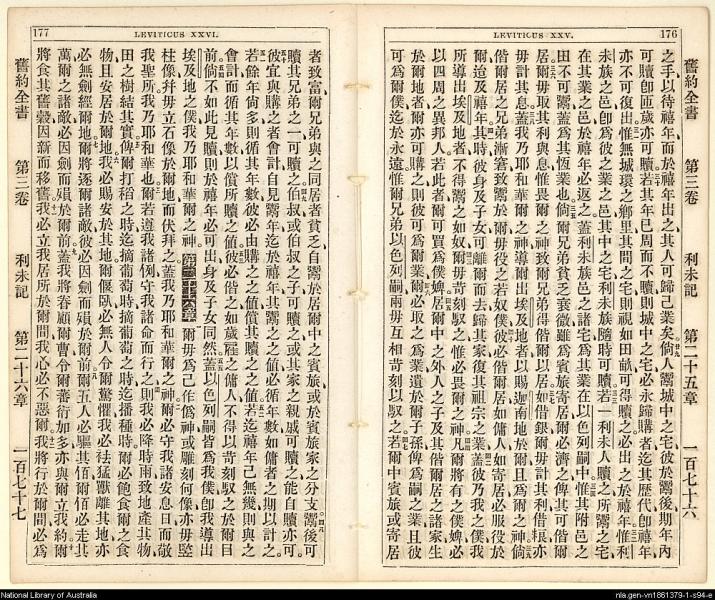 LEVITICUS XXV.
176
舊約全書 第三卷 利未記 第二十五章 一百七十六
之手以待禧年而於禧年出之其人可歸己業矣倘人鬻城中之宅彼於鬻後期年內
可贖卽匝歲亦可贖若其年已周而不贖則城中之宅必永歸購者迄其歷代卽禧年
亦不可復出惟無城環之鄉里其間之宅則視如田畝可得贖之必出之於禧年惟利
未族之邑卽爲彼之業之邑其中之宅利未族隨時可贖若一利未人贖之所鬻之宅
在其業之邑於禧年必返之蓋利未族邑之諸宅爲其業在以色列嗣中惟其附邑之
田不可鬻蓋爲其恆業也倘爾兄弟貧乏衰微雖爲賓旅寄居爾必濟之俾其可偕爾
居爾毋取其利與息惟畏爾之神致爾兄弟得偕爾以居如借銀爾毋計其利借糧亦
毋計其息蓋我乃耶和華爾之神導爾出埃及地者以賜迦南地於爾且爲爾之神倘
偕爾居之兄弟漸窘致鬻於爾毋役之若奴僕彼必偕爾居如傭人如寄居必服役於
爾迨及禧年其時彼身及子女可離爾而去歸其家復其祖宗之業蓋彼乃我之僕我
所導出埃及地者不得鬻之如奴爾毋苛刻馭之惟必畏爾之神凡爾將有之僕婢必
以四周之異邦人若此者爾可買爲僕婢居爾中之外人之子及其偕爾居之諸家生
於爾地者爾亦可購之則彼可爲爾業爾必取之爲業遺於爾子孫俾爲嗣業且彼
可爲爾僕迄於永遠惟爾兄弟以色列嗣兩毋互相苛刻以馭之若爾中賓旅或寄居
LEVITICUS XXVI.
177
者致富爾兄弟與之同居者貧乏自鬻於居爾中之賓旅或於賓旅家之分支鬻後可
贖其兄弟之一可贖之伯叔或伯叔之子可贖之或其家之親戚可贖之能自贖亦可
彼宜與購之者會計自見鬻年迄於禧年其鬻之之值必循年數如傭者之期以計之
若餘年尚多則循其年數彼必由購之之值償其贖之之值若迄禧年已無幾則與之
會計而循其年數以償所贖之值彼必偕之如歲雇之傭人不得以苛刻馭之於爾目
前倘不如此見贖則於禧年必可出身及子女同然蓋以色列嗣皆爲我僕卽我導出
埃及地之僕我乃耶和華爾之神第二十六章爾毋爲己作僞神或雕刻何像亦毋竪
柱像幷毋立石像於爾地而伏拜之蓋我乃耶和華爾之神爾必守我諸安息日而敬
我聖所我乃耶和華也若遵我諸例守我諸命而行之則我必降時雨致地產其物
田之樹結其實俾爾打稻之時迄摘葡萄時摘葡萄之時迄播種時爾必飽食爾之食
物且安居於爾地我必賜安於其地爾偃臥必無人令爾驚懼我必袪猛獸離其地亦
必無劍經爾地爾將逐爾諸敵彼必因劍而殞於爾前爾五人必驅其佰爾佰必走其
萬爾之諸敵必因劍而殞於爾前蓋我將眷顧爾曹令爾蕃衍加多亦與爾立我約爾
將食其舊穀因新而移舊我必立我居所於爾間我心必不惡爾我將行於爾間必爲
舊約全書 第三卷 利未記 第二十六章 一百七十七
National Library of Australia
nla.gen-vn1861379-1-s94-e